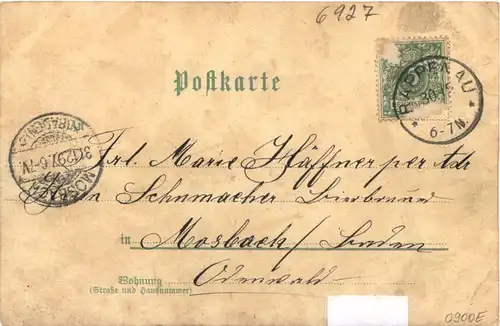 6927
Postkarte
RAPPENAU
30 12
6-7N.
MOSBACH
31.12.97.6-7V.
Frl. Marie Häffner per Adr
An Schumacher Bierbrauer
in Mosbach / Baden
Wohnung Odenwald
(Straße und Hausnummer)
0900E